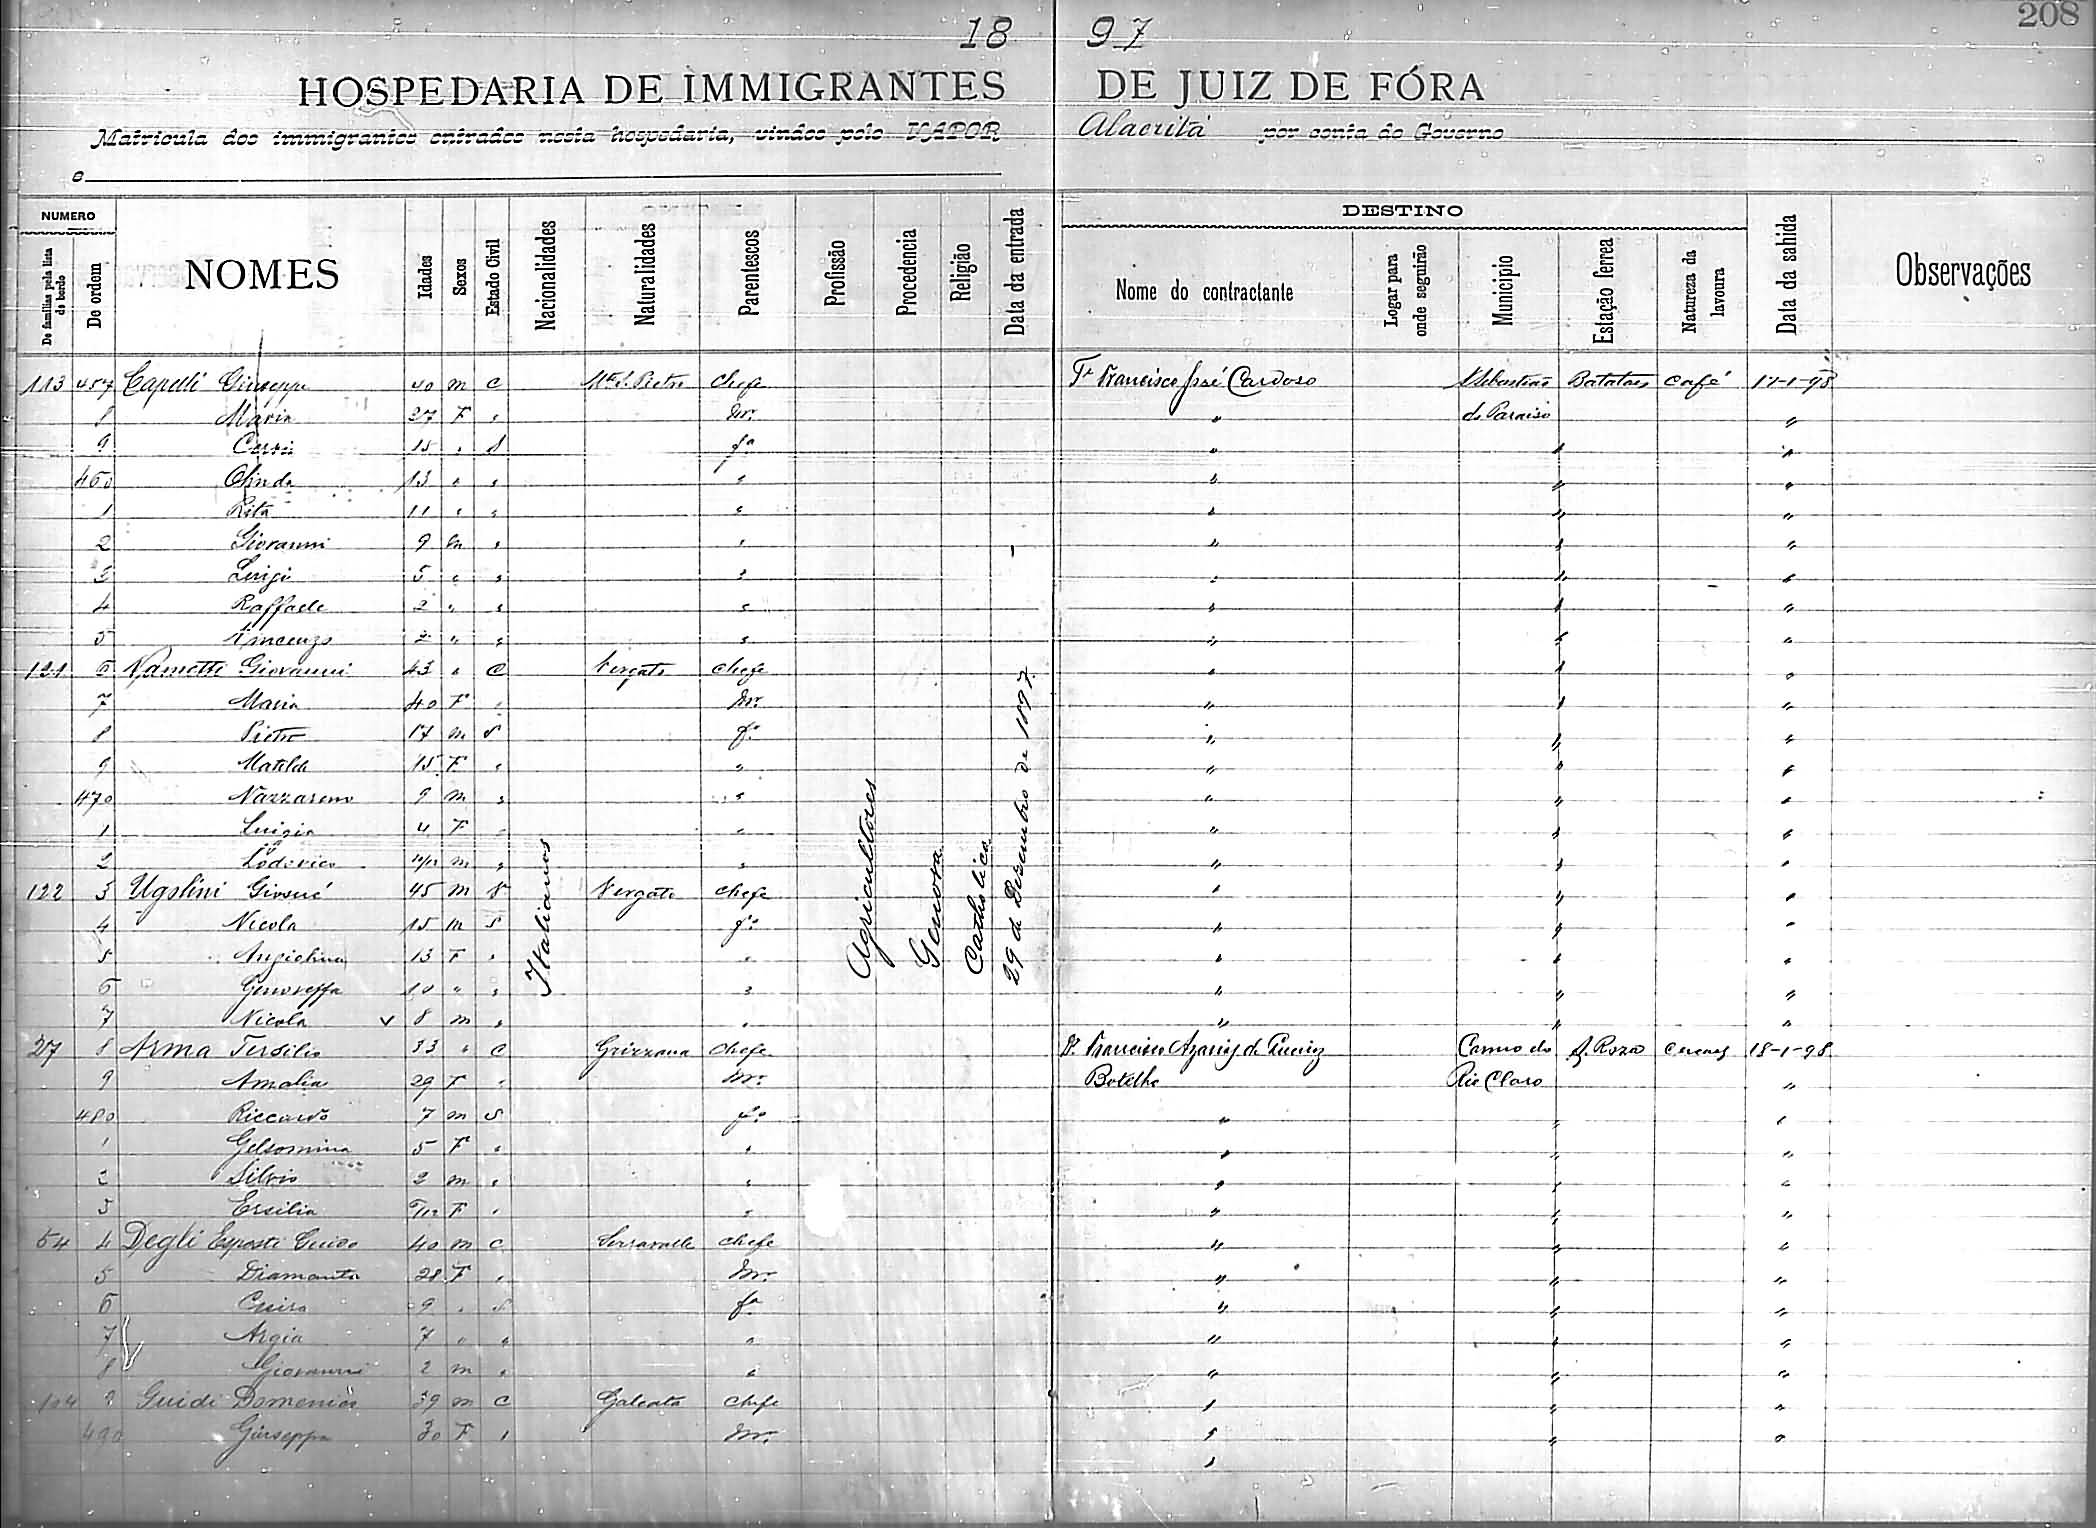 208
18 97
HOSPEDARIA DE IMMIGRANTES DE JUIZ DE FÓRA
Matricula dos immigrantes entrados nesta hospedaria, vindos pelo VAPOR Alacrità por conta do Governo
o
NUMERO
De familias pela lista de bordo
De ordem
NOMES
Idades
Sexos
Estado Civil
Nacionalidades
Naturalidades
Parentescos
Profissão
Procedencia
Religião
Data da entrada
DESTINO
Nome do contractante
Logar para onde seguirão
Municipio
Estação ferrea
Natureza da lavoura
Data da sahida
Observações
113 457 Capelli Giuseppe 40 m C chefe Te Francisco José Cardoso S. Sebastião Batataes café 17-1-98
8 Maria 27 F " Mr. " do Paraiso "
9 15 " S fa " " "
460 Olinda 13 " " " " " "
1 Rita 11 " " " " " "
2 Giovanni 9 m " " " " "
3 Luigi 5 " " " " " "
4 Raffaele 2 " " " " " "
5 Vincenzo 2 " " " " " "
121 6 Giovanni 43 " C Vergato chefe " " "
7 Maria 40 F " Mr. " " "
8 Pietro 17 m S fo " " "
9 Matilde 15 F " " " " "
470 Nazzareno 9 m " " " " "
1 Luigia 4 F " " " " "
2 Lodovico m " " " " "
122 3 Ugolini Giosué 45 m V Vergato chefe " " "
4 Nicola 15 m S fo " " "
5 Angiolina 13 F " " " " "
6 Genoveffa 10 " " " " " "
7 Nicola v 8 m " " " " "
27 8 Arma Tersilio 33 " C Grizzana chefe Dr. Francisco Azarias de Queiroz Carmo do S. Roza 18-1-98
9 Amalia 29 F " Mr. Botelho Rio Claro "
480 Riccardo 7 m S fo " " "
1 Gelsomina 5 F " " " " "
2 Silvio 2 m " " " " "
3 Ersilia F " " " " "
54 4 Degli Esposti Guido 40 m C Serravalle chefe " " "
5 Diamanta 28 F " Mr. " " "
6 9 " S fa " " "
7 Argia 7 " " " " " "
8 Giovanni 2 m " " " " "
104 9 Guidi Domenico 39 m C Galeata chefe " " "
490 Giuseppa 30 F " Mr. " " "
"
Italianos
Agricultores
Genova
Catholica
29 de Dezembro de 1897